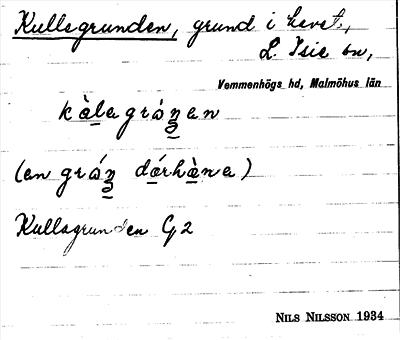 Kullagrunden, grund i havet,
L. Isie sn,
Vemmenhögs hd, Malmöhus län
kàlagrónan
(en grón dórhàna)
Kullagrunden G2
NILS NILSSON 1934